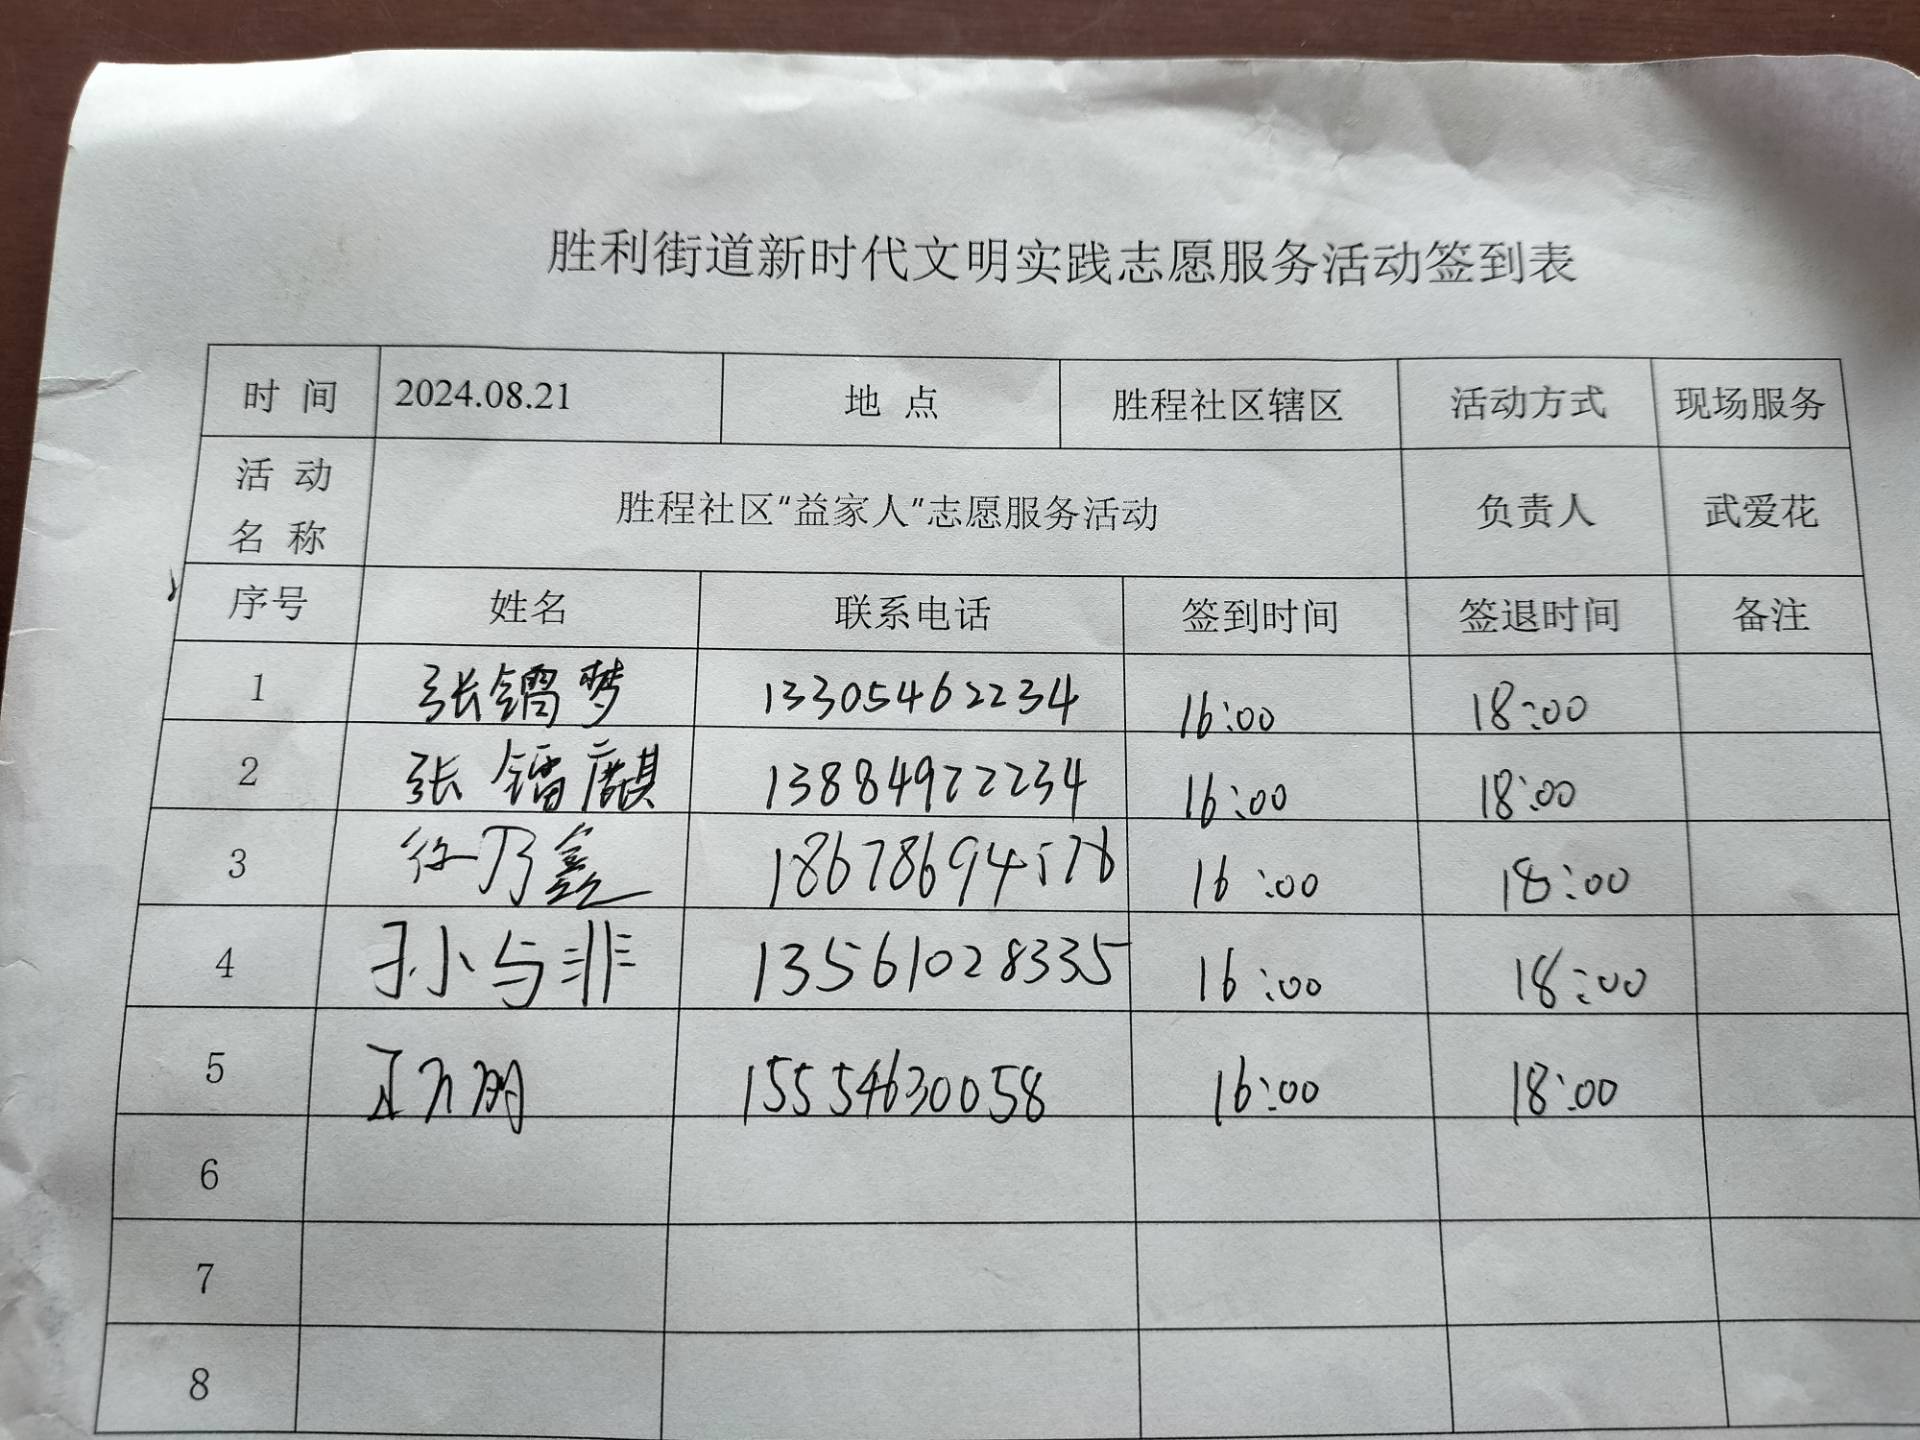 胜利街道新时代文明实践志愿服务活动签到表
时 间 2024.08.21 地 点 胜程社区辖区 活动方式 现场服务
活 动
名 称 胜程社区“益家人”志愿服务活动 负责人 武爱花
序号 姓名 联系电话 签到时间 签退时间 备注
1 张镭梦 13305462234 16:00 18:00
2 张镭麒 13884922234 16:00 18:00
3 徐乃鑫 18678694576 16:00 18:00
4 孙与非 13561028335 16:00 18:00
5 15554630058 16:00 18:00
6
7
8